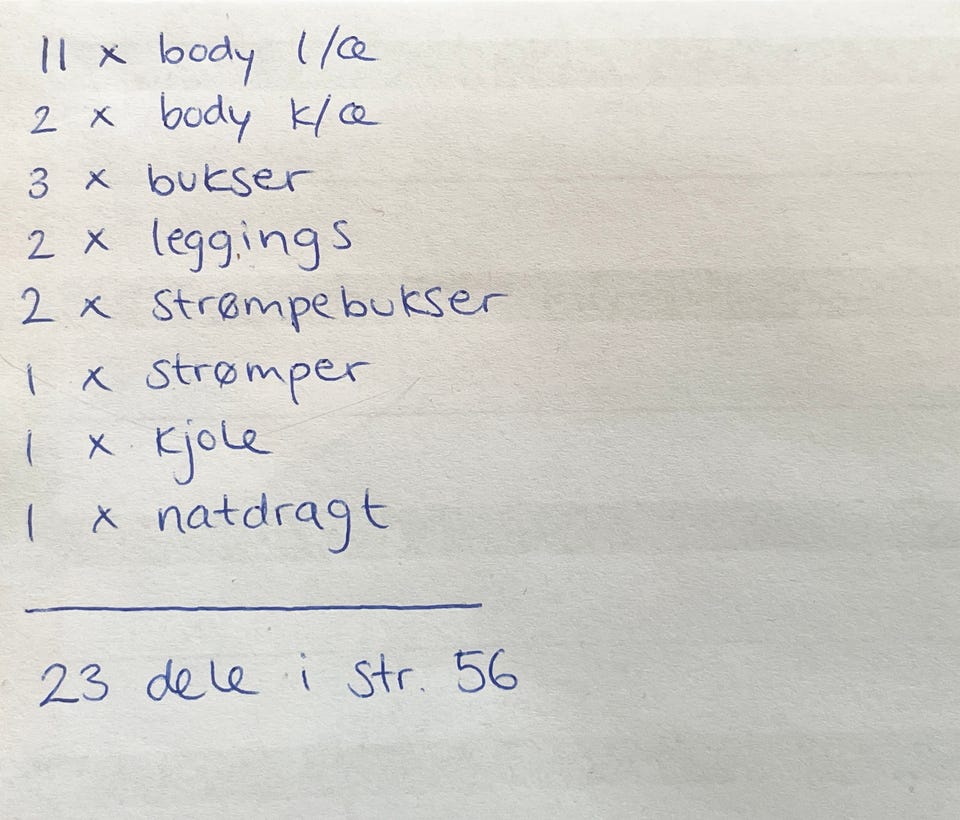 11 x body l/æ
2 x body k/æ
3 x bukser
2 x leggings
2 x strømpebukser
1 x strømper
1 x kjole
1 x natdragt
23 dele i str. 56